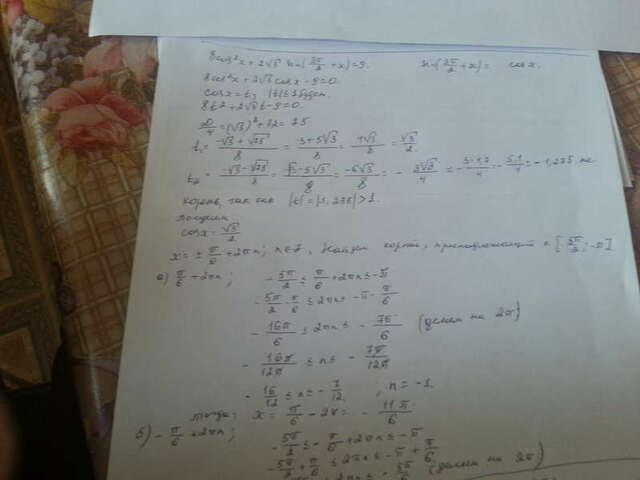 8cos²x + 2√3 sin(3π/2 + x) = 9. sin(3π/2 + x) = cosx.
8cos²x + 2√3 cosx - 9 = 0.
cosx = t,
8t² + 2√3 t - 9 = 0.
D/4 = (√3)² + 72 = 75
t₁ = (-√3 + √75)/8 = (-√3 + 5√3)/8 = 4√3/8 = √3/2.
t₂ = (-√3 - √75)/8 = (-√3 - 5√3)/8 = -6√3/8 = - 3√3/4 = - 3·1,7/4 = - 5,1/4 = - 1,275 не
корень, так как |t| = |1,275| > 1.
получим
cosx = √3/2
x = ± π/6 + 2πn; n∈Z, Найдем корни, принадлежащий к [5π/2; -π]
а) π/6 + 2πn; - 5π/2 ≤ π/6 + 2πn ≤ -π
- 5π/2 - π/6 ≤ 2πn ≤ -π - π/6
- 16π/6 ≤ 2πn ≤ - 7π/6 (делим на 2π)
- 16π/12π ≤ n ≤ - 7π/12π
- 16/12 ≤ n ≤ - 7/12 ; n = -1.
тогда: x = π/6 - 2π = - 11π/6.
б) - π/6 + 2πn; - 5π/2 ≤ - π/6 + 2πn ≤ -π
- 5π/2 + π/6 ≤ 2πn ≤ -π + π/6
≤ 2πn ≤ - 5π/6 (делим на 2π)